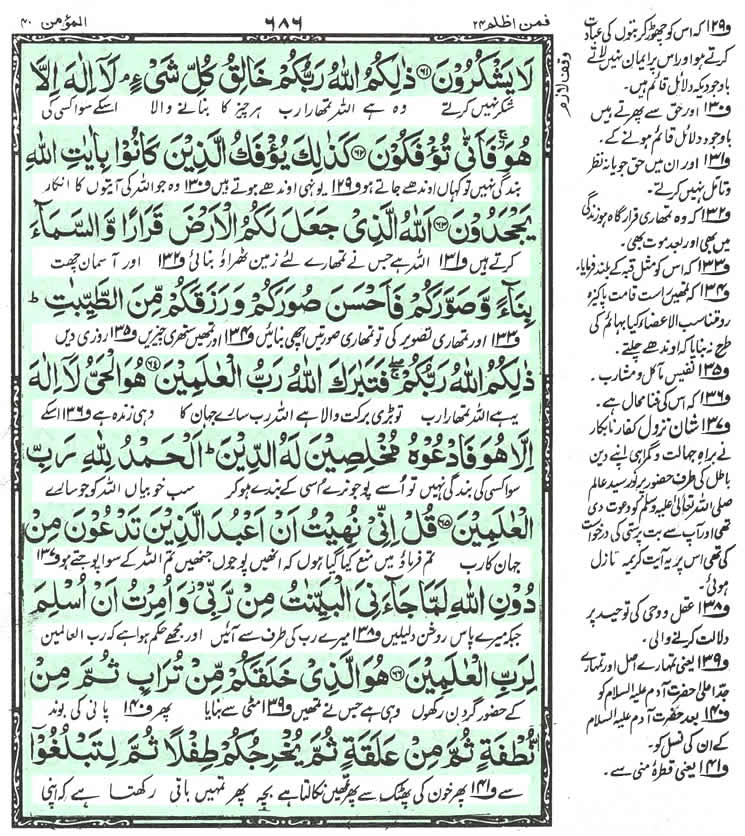 المؤمن ٤٠
٦٨٦
فمن اظلم ٢٤
لَا يَشْكُرُوْنَ ﴿٦١﴾ ذٰلِكُمُ اللّٰهُ رَبُّكُمْ خَالِقُ كُلِّ شَیْءٍ ۘ لَاۤ اِلٰهَ اِلَّا
شکر نہیں کرتے وہ ہے اللہ تمھارا رب ہر چیز کا بنانے والا اسکے سوا کسی کی
هُوَ ۫ فَاَنّٰى تُؤْفَكُوْنَ ﴿٦٢﴾ كَذٰلِكَ يُؤْفَكُ الَّذِيْنَ كَانُوْا بِاٰيٰتِ اللّٰهِ
بندگی نہیں تو کہاں اوندھے جاتے ہو و۱۲۹ یونہی اوندھے ہوتے ہیں و۱۳۰ وہ جو اللہ کی آیتوں کا انکار
يَجْحَدُوْنَ ﴿٦٣﴾ اَللّٰهُ الَّذِیْ جَعَلَ لَكُمُ الْاَرْضَ قَرَارًا وَّ السَّمَآءَ
کرتے ہیں و۱۳۱ اللہ ہے جس نے تمھارے لئے زمین ٹھراؤ بنائی و۱۳۲ اور آسمان چھت
بِنَآءً وَّ صَوَّرَكُمْ فَاَحْسَنَ صُوَرَكُمْ وَ رَزَقَكُمْ مِّنَ الطَّيِّبٰتِ ؕ
و۱۳۳ اور تمھاری تصویر کی تو تمھاری صورتیں اچھی بنائیں و۱۳۴ اور تمھیں ستھری چیزیں و۱۳۵ روزی دیں
ذٰلِكُمُ اللّٰهُ رَبُّكُمْ ۖۚ فَتَبٰرَكَ اللّٰهُ رَبُّ الْعٰلَمِيْنَ ﴿٦٤﴾ هُوَ الْحَیُّ لَاۤ اِلٰهَ
یہ ہے اللہ تمھارا رب تو بڑی برکت والا ہے اللہ رب سارے جہان کا وہی زندہ ہے و۱۳۶ اسکے
اِلَّا هُوَ فَادْعُوْهُ مُخْلِصِيْنَ لَهُ الدِّيْنَ ؕ اَلْحَمْدُ لِلّٰهِ رَبِّ
سوا کسی کی بندگی نہیں تو اُسے پوجو نرے اُسی کے بندے ہوکر سب خوبیاں اللہ کو جو سارے
الْعٰلَمِيْنَ ﴿٦٥﴾ قُلْ اِنِّیْ نُهِيْتُ اَنْ اَعْبُدَ الَّذِيْنَ تَدْعُوْنَ مِنْ
جہان کا رب تم فرماؤ میں منع کیا گیا ہوں کہ انھیں پوجوں جنھیں تم اللہ کے سوا پوجتے ہو و۱۳۷
دُوْنِ اللّٰهِ لَمَّا جَآءَنِیَ الْبَيِّنٰتُ مِنْ رَّبِّیْ ۫ وَ اُمِرْتُ اَنْ اُسْلِمَ
جبکہ میرے پاس روشن دلیلیں و۱۳۸ میرے رب کی طرف سے آئیں اور مجھے حکم ہوا ہے کہ رب العالمین
لِرَبِّ الْعٰلَمِيْنَ ﴿٦٦﴾ هُوَ الَّذِیْ خَلَقَكُمْ مِّنْ تُرَابٍ ثُمَّ مِنْ
کے حضور گردن رکھوں وہی ہے جس نے تمھیں و۱۳۹ مٹی سے بنایا پھر و۱۴۰ پانی کی بوند
نُّطْفَةٍ ثُمَّ مِنْ عَلَقَةٍ ثُمَّ يُخْرِجُكُمْ طِفْلًا ثُمَّ لِتَبْلُغُوْۤا
سے و۱۴۱ پھر خون کی پھٹک سے پھر تمھیں نکالتا ہے بچہ پھر تمہیں باقی رکھتا ہے کہ اپنی
و۱۲۹ کہ اس کو چھوڑ کر بتوں کی عبادت
کرتے ہو اور اس پر ایمان نہیں لاتے
باوجودیکہ دلائل قائم ہیں۔
و۱۳۰ اور حق سے پھرتے ہیں
باوجود دلائل قائم ہونے کے۔
و۱۳۱ اور ان میں حق جویانہ نظر
و تامّل نہیں کرتے۔
و۱۳۲ کہ وہ تمھاری قرارگاہ ہو زندگی
میں بھی اور بعد موت بھی۔
و۱۳۳ کہ اس کو مثل قبہ کے بلند فرمایا۔
و۱۳۴ کہ تمھیں راست قامت پاکیزہ
رو متناسب الاعضا کیا بہائم کی
طرح نہ بنایا کہ اوندھے چلتے۔
و۱۳۵ نفیس مآکل و مشارب۔
و۱۳۶ کہ اس کی فنا محال ہے۔
و۱۳۷ شان نزول کفار نابکار
نے براہ جہالت و گمراہی اپنے دین
باطل کی طرف حضور پرنور سید عالم
صلی اللہ تعالیٰ علیہ وسلم کو دعوت دی
تھی اور آپ سے بت پرستی کی درخواست
کی تھی اس پر یہ آیت کریمہ نازل
ہوئی۔
و۱۳۸ عقل و وحی کی توحید پر
دلالت کرنے والی۔
و۱۳۹ یعنی تمہارے اصل اور تمہارے
جدِ اعلیٰ حضرت آدم علیہ السلام کو
و۱۴۰ بعد حضرت آدم علیہ السلام
کے ان کی نسل کو۔
و۱۴۱ یعنی قطرۂ منی سے۔
وقف لازم